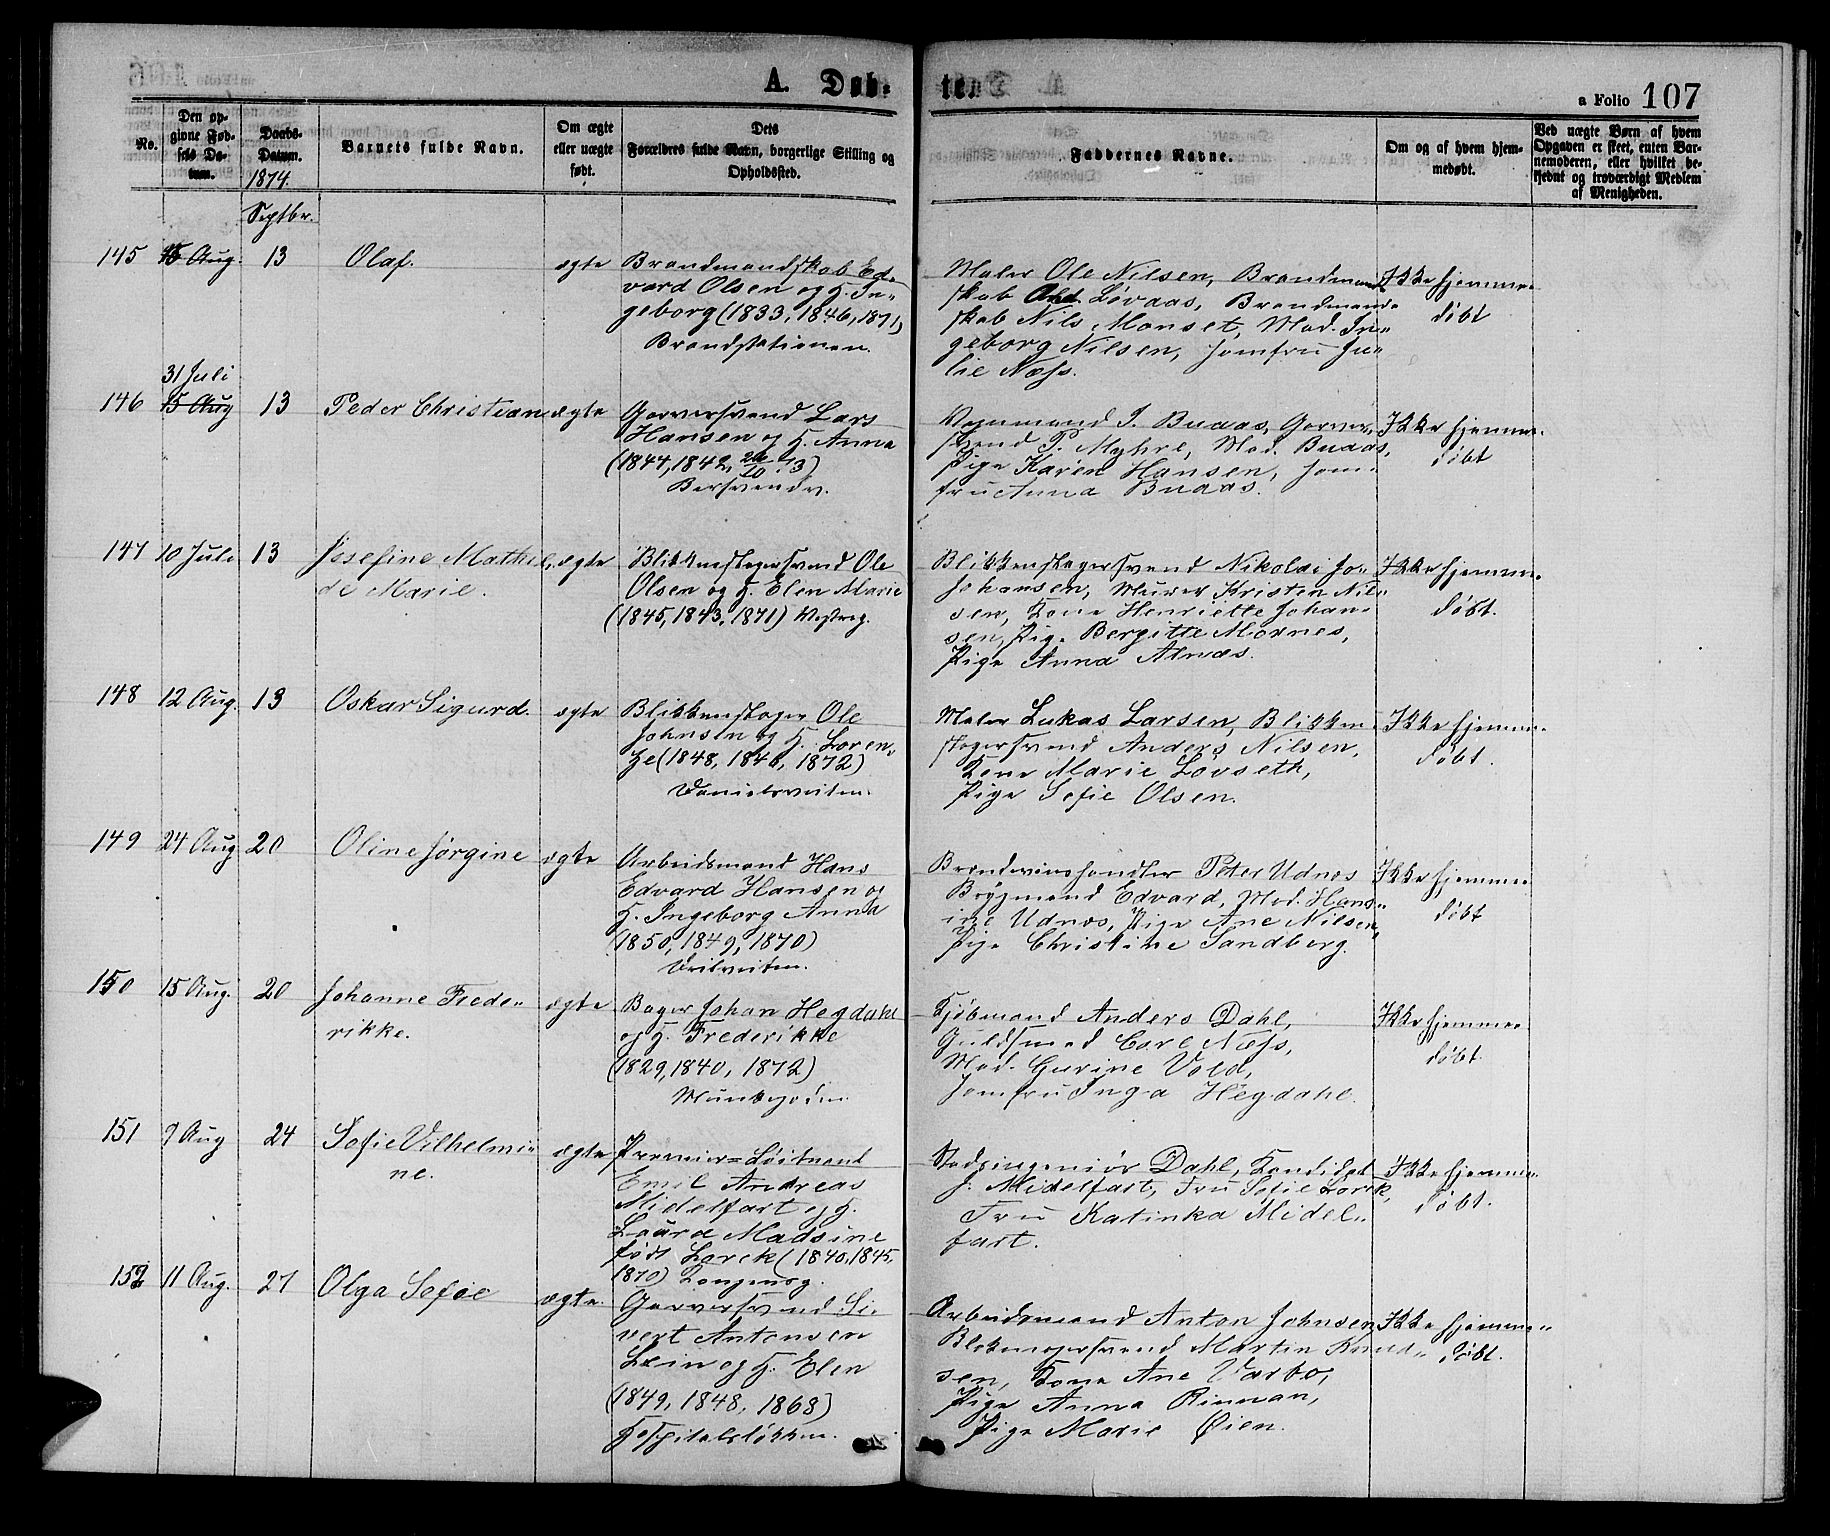 A. Døb-
te.
a Folio 107
No.
Den op-
givne Fød-
sels Da-
tum.
Daabs-
Datum.
1874.
Barnets fulde Navn.
Om ægte
eller uægte
født.
Dets
Forældres fulde Navn, borgerlige Stilling og
Opholdssted.
Faddernes Navne.
Om og af hvem hjem-
medøbt.
Ved uægte Børn af hvem
Opgaven er skeet, enten Bar-
nemoderen, eller hvilket be-
kjendt og troværdigt Medlem
af Menigheden.
Septbr.
145 Aug. 13 Olaf. ægte
Brandmandskab Ed-
vard Olsen og H. In-
geborg (1833, 1846, 1871)
Brandstationen.
Maler Ole Nilsen, Brandmand-
skab Løvaas, Brandmand-
skab Nils Monset, Mad. In-
geborg Nilsen, Jomfru Ju-
lie Næss.
Ikke hjemme-
døbt
31 Juli
146 15 Aug 13 Peder Christian ægte
Garversvend Lars
Hansen og H. Anna
(1844, 1842, 73)
Bersvendv.
Vognmand J. Buaas, Garver-
svend P. Myhre, Mad. Buaas,
Pige Karen Hansen, Jom-
fru Anna Buaas.
Ikke hjemme-
døbt
147 10 Juli 13 Josefine Mathil-
de Marie. ægte
Blikkenslagersvend Ole
Olsen og H. Elen Marie
(1845, 1843, 1871) Vestreg.
Blikkenslagersvend Nikolai Jo-
Johansen, Murer Kristen Nil-
sen, Kone Henriette Johan-
sen, Pige Bergitte Mornes,
Pige Anna Alnæs.
Ikke hjemme-
døbt.
148 12 Aug. 13 Oskar Sigurd. ægte
Blikkenslager Ole
Johnsen og H. Loren-
ze (1848, 1872)
Danielsveiten.
Maler Lukas Larsen, Blikken-
slagersvend Anders Nilsen,
Kone Marie Løvseth,
Pige Sofie Olsen.
Ikke hjemme-
døbt.
149 24 Aug 20 Oline Jørgine ægte
Arbeidsmand Hans
Edvard Hansen og
H. Ingeborg Anna
(1850, 1849, 1870)
Brændevinshandler Peter Udnæs
Bøygmand Edvard, Mad. Hans-
ine Udnæs, Pige Ane Nilsen,
Pige Christine Sandberg.
Ikke hjemme-
døbt
150 15 Aug. 20 Johanne Frede-
rikke. ægte
Bager Johan Hegdahl
og H. Frederikke
(1829, 1840, 1872)
Munkegaden
Kjøbmand Anders Dahl,
Guldsmed Carl Næss,
Mad. Gurine Vold,
Jomfru Inga Hegdahl.
Ikke hjemme-
døbt.
151 9 Aug 24 Sofie Vilhelmi-
ne. ægte
Premier=Løitnant
Emil Andreas
Midelfart og H.
Laura Madsine
født Lorck (1840, 1845,
1870) Kongensg.
Stadsingeniør Dahl, Kandidat
J. Midelfart, Fru Sofie Lorck,
Fru Katinka Midel-
fart.
Ikke hjemme-
døbt.
152 11 Aug. 27 Olga Sofie ægte.
Garversvend Si-
vert Antonsen
Lein og H. Elen
(1849, 1848, 1868)
Hospitalsløkken.
Arbeidsmand Anton Johnsen
Blokmagersvend Martin Knud-
sen, Kone Ane Varbo,
Pige Anna Rinnan,
Pige Marie Øien.
Ikke hjemme-
døbt.